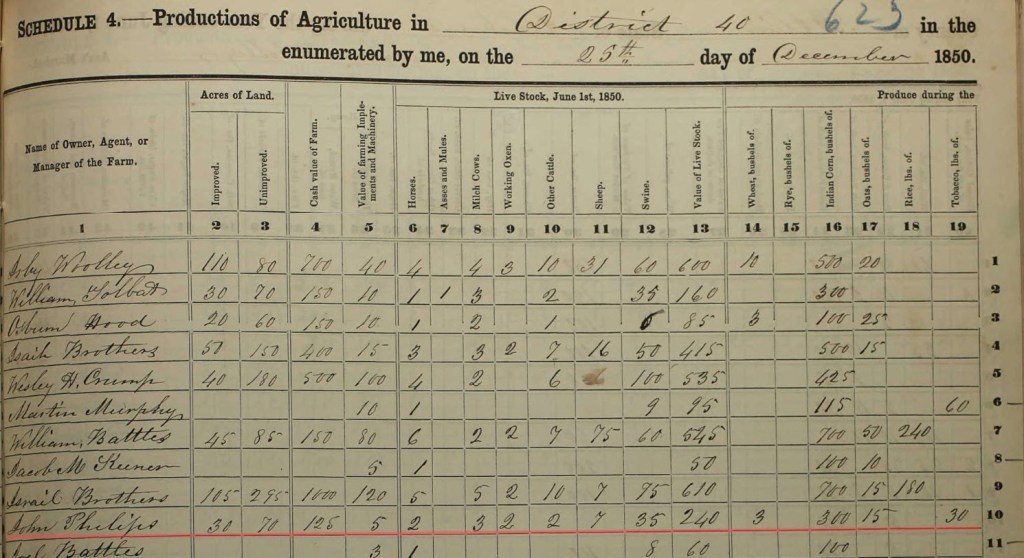 623
SCHEDULE 4.—Productions of Agriculture in District 40 in the
enumerated by me, on the 25th day of December 1850.
Name of Owner, Agent, or Manager of the Farm.
Acres of Land.
Improved.
Unimproved.
Cash value of Farm.
Value of farming Implements and Machinery.
Live Stock, June 1st, 1850.
Horses.
Asses and Mules.
Milch Cows.
Working Oxen.
Other Cattle.
Sheep.
Swine.
Value of Live Stock.
Produce during the
Wheat, bushels of.
Rye, bushels of.
Indian Corn, bushels of.
Oats, bushels of.
Rice, lbs. of.
Tobacco, lbs. of.
1 2 3 4 5 6 7 8 9 10 11 12 13 14 15 16 17 18 19
Woolley 110 80 700 40 4 4 3 10 31 60 600 10 500 20 1
William Tolbat 30 70 150 10 1 1 3 2 35 160 300 2
Osburn Hood 20 60 150 10 1 2 1 6 85 3 100 25 3
Isaih Brothers 50 150 400 15 3 3 2 7 16 50 415 500 15 4
Wesley H. Crump 40 180 500 100 4 2 6 100 535 425 5
Martin Murphy 10 1 9 95 115 60 6
William Battles 45 85 150 80 6 2 2 7 75 60 545 700 50 240 7
Jacob M Keener 5 1 50 100 10 8
Israil Brothers 105 295 1000 120 5 5 2 10 7 75 610 700 15 180 9
John Philips 30 70 125 5 2 3 2 2 7 35 240 3 300 15 30 10
Battles 3 1 8 60 100 11